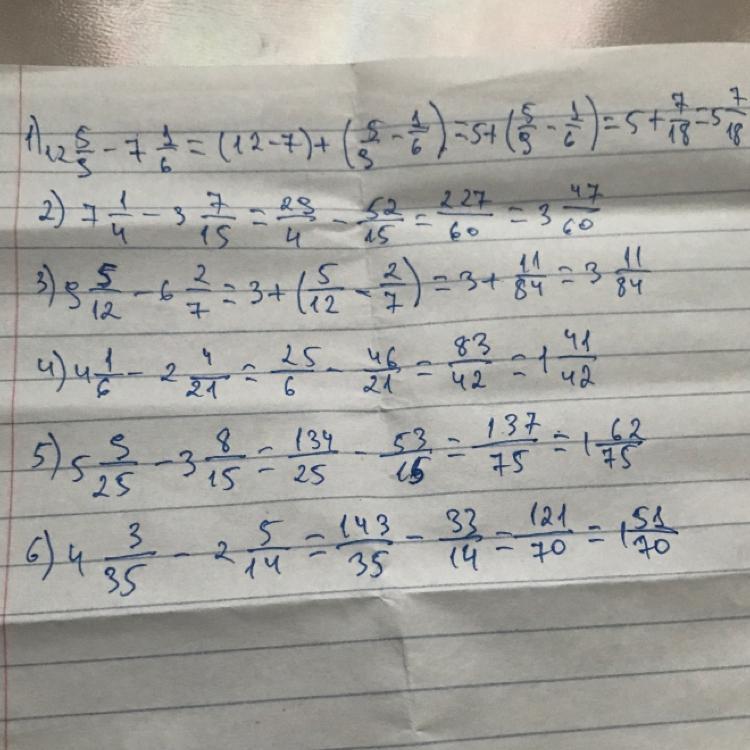 1) 12 5/9 - 7 1/6 = (12-7) + (5/9 - 1/6) = 5 + (5/9 - 1/6) = 5 + 7/18 = 5 7/18
2) 7 1/4 - 3 7/15 = 29/4 - 52/15 = 227/60 = 3 47/60
3) 9 5/12 - 6 2/7 = 3 + (5/12 - 2/7) = 3 + 11/84 = 3 11/84
4) 4 1/6 - 2 4/21 = 25/6 - 46/21 = 83/42 = 1 41/42
5) 5 9/25 - 3 8/15 = 134/25 - 53/15 = 137/75 = 1 62/75
6) 4 3/35 - 2 5/14 = 143/35 - 33/14 = 121/70 = 1 51/70